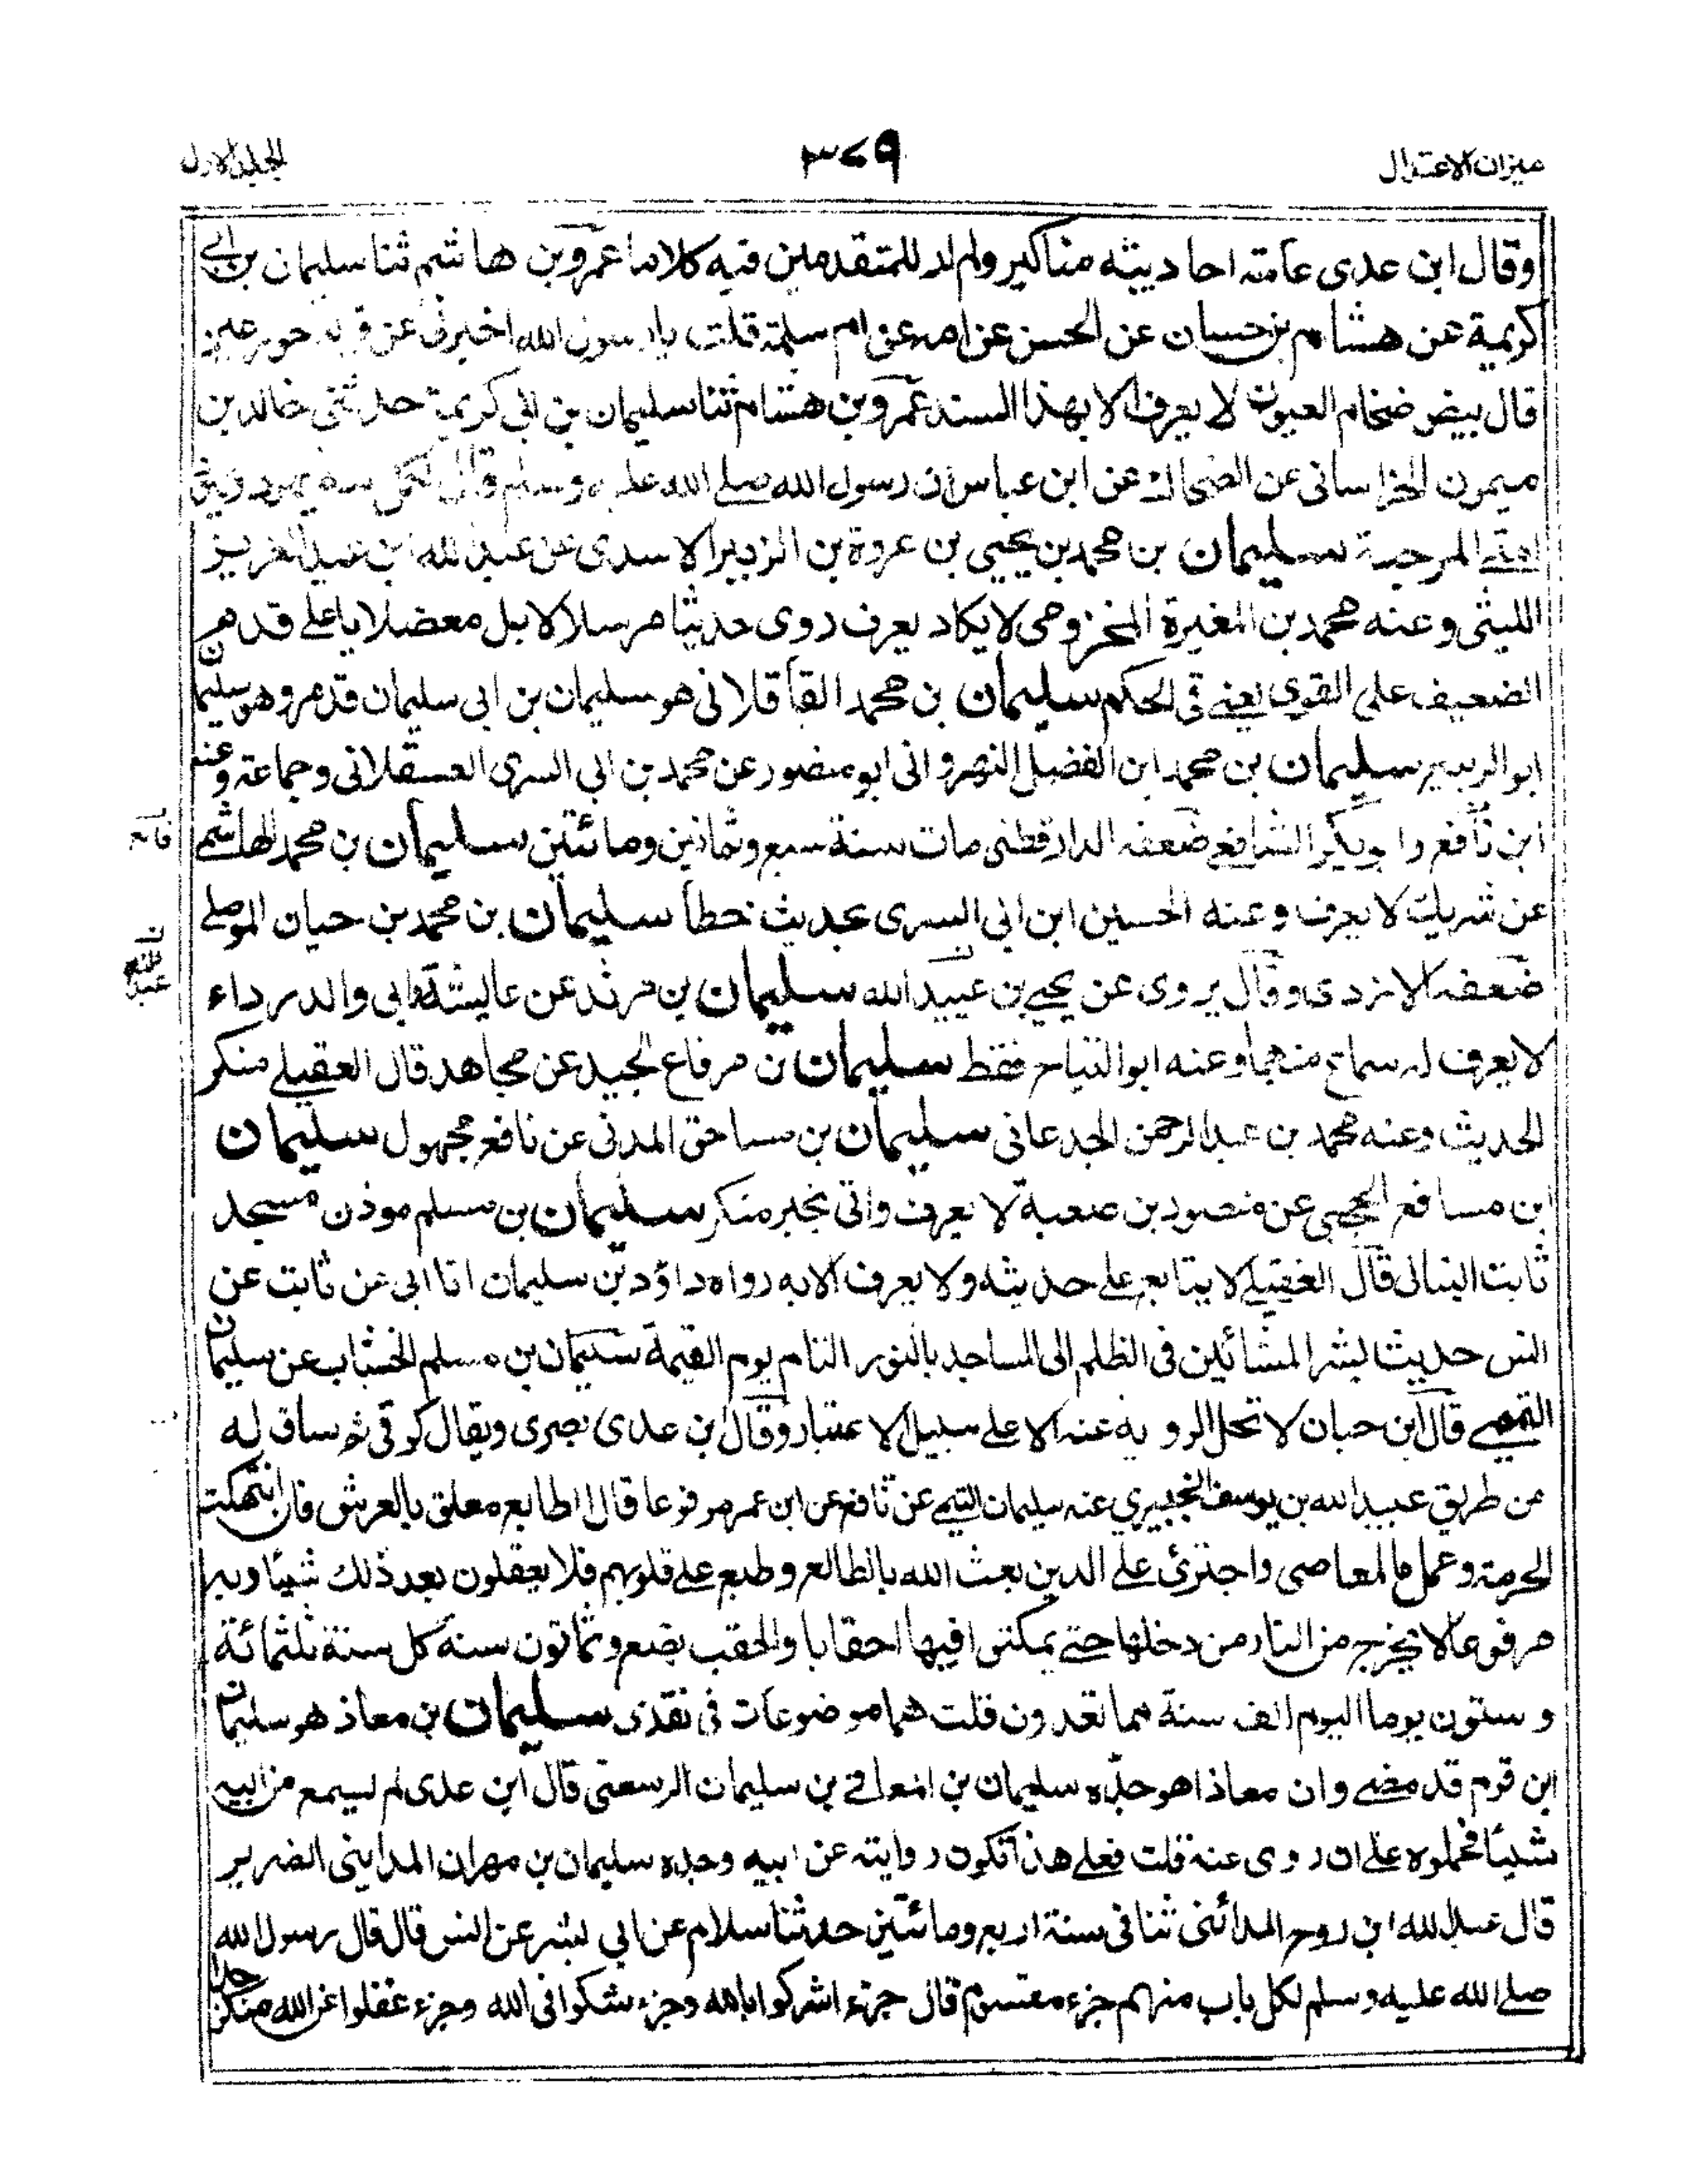 ميزان الاعتدال ٣٧٩ الجلد الاول
وقال ابن عدى عامته احاديثه مناكير ولم ار للمتقدمين فيه كلاما عمرو بن هاشم ثنا سليمان بن ابے
كريمة عن هشام بن حسان عن الحسن عن امه عن ام سلمة قلت يا رسول الله اخبرنى عن قوله حور عين
قال بيض ضخام العيون لا يعرف الا بهذا السند عمرو بن هشام ثنا سليمان بن ابى كريمة حدثنى خالد بن
ميمون الخراسانى عن الضحاك عن ابن عباس ان رسول الله صلے الله عليه وسلم قال لكل
امتے المرجية سليمان بن محمد بن يحيى بن عروة بن الزبير الاسدى عن عبد الله ابن عبد العزيز
الليثى وعنه محمد بن المغيرة المخزومى لا يكاد يعرف روى حديثا مرسلا لا بل معضلا يا على قدم من
الضعيف على القوى يعنے فى الحكم سليمان بن محمد القاقلانى هو سليمان بن ابى سليمان قد مر وهو سليما
ابو الربيع سليمان بن محمد ابن الفضل النهروانى ابو منصور عن محمد بن ابى السرى العسقلانى وجماعة وعنه
ابن نافع وا بو بكر الشافعے ضعفه الدارقطنى مات سنة سبع وثمانين ومائتين سليمان بن محمد الهاشمے
عن شريك لا يعرف وعنه الحسين ابن ابى السرى بحديث خطأ سليمان بن محمد بن حيان الموصلے
ضعفه الازدى وقال يروى عن يحيے بن عبيد الله سليمان بن مرثد عن عايشة وابى والدرداء
لا يعرف له سماع منهما وعنه ابو التياح فقط سليمان بن مرفاع الجيد عن مجاهد قال العقيلے منكر
الحديث وعنه محمد بن عبد الرحمن الجدعانى سليمان بن مساحق المدنى عن نافع مجهول سليمان
ابن مسافع الحجبى عن منصور بن صعبة لا يعرف واتى بخبر منكر سليمان بن مسلم موذن مسجد
ثابت البنانى قال العقيلے لا يتابع على حديثه ولا يعرف الا به رواه داؤد بن سليمان انا ابى عن ثابت عن
انس حديث بشر المشائين فى الظلم الى المساجد بالنور التام يوم القيمة سليمان بن مسلم الخشاب عن سليمان
التيمے قال ابن حبان لا تحل الرواية عنه الا علے سبيل الاعتبار وقال ابن عدى بصرى ويقال كوفى ثم ساق له
من طريق عبيد الله بن يوسف الجبيرى عنه سليمان التيمے عن نافع عن ابن عمر مرفوعا قال الطابع معلق بالعرش فان انتهكت
الحرمة وعمل بالمعاصى واجترئ علے الدين بعث الله بالطالع وطبع علے قلوبهم فلا يعقلون بعد ذلك شيئا وبه
مرفوعا لا يخرج من النار من دخلها حتے يمكثوا فيها احقابا والحقب بضع وثمانون سنة كل سنة ثلثمائة
و ستون يوما اليوم الف سنة مما تعدون قلت هما موضوعات فى نقدى سليمان بن معاذ هو سليمان
ابن قرم قد مضے وان معاذا هو جده سليمان بن المعافے بن سليمان الرسعنى قال ابن عدى لم يسمع من ابيه
شيئا فحملوه علے ان روى عنه قلت فعلے هذا تكون روايته عن ابيه وجده سليمان بن مهران المداينى الضرير
قال عبد الله ابن روح المدائنى ثنا فى سنة اربع ومائتين حدثنا سلام عن ابى بشر عن انس قال قال رسول الله
صلے الله عليه وسلم لكل باب منهم جزء مقسوم قال جزء اشركوا بالله وجزء شكوا فى الله وجزء غفلوا عن الله منكر جدا